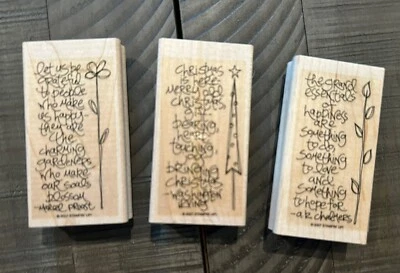 let us be
grateful
to people
who make
us happy-
they are
the
charming
gardeners
who make
our souls
blossom
-marcel proust
© 2007 STAMPIN' UP!
Christmas
is here
merry old
Christmas
gift
bearing
heart
touching
joy
bringing
Christmas
-washington
irving
© 2007 STAMPIN' UP!
the grand
essentials
of
happiness
are
something
to do
something
to love
and
something
to hope for
-a.k. chalmers
© 2007 STAMPIN' UP!